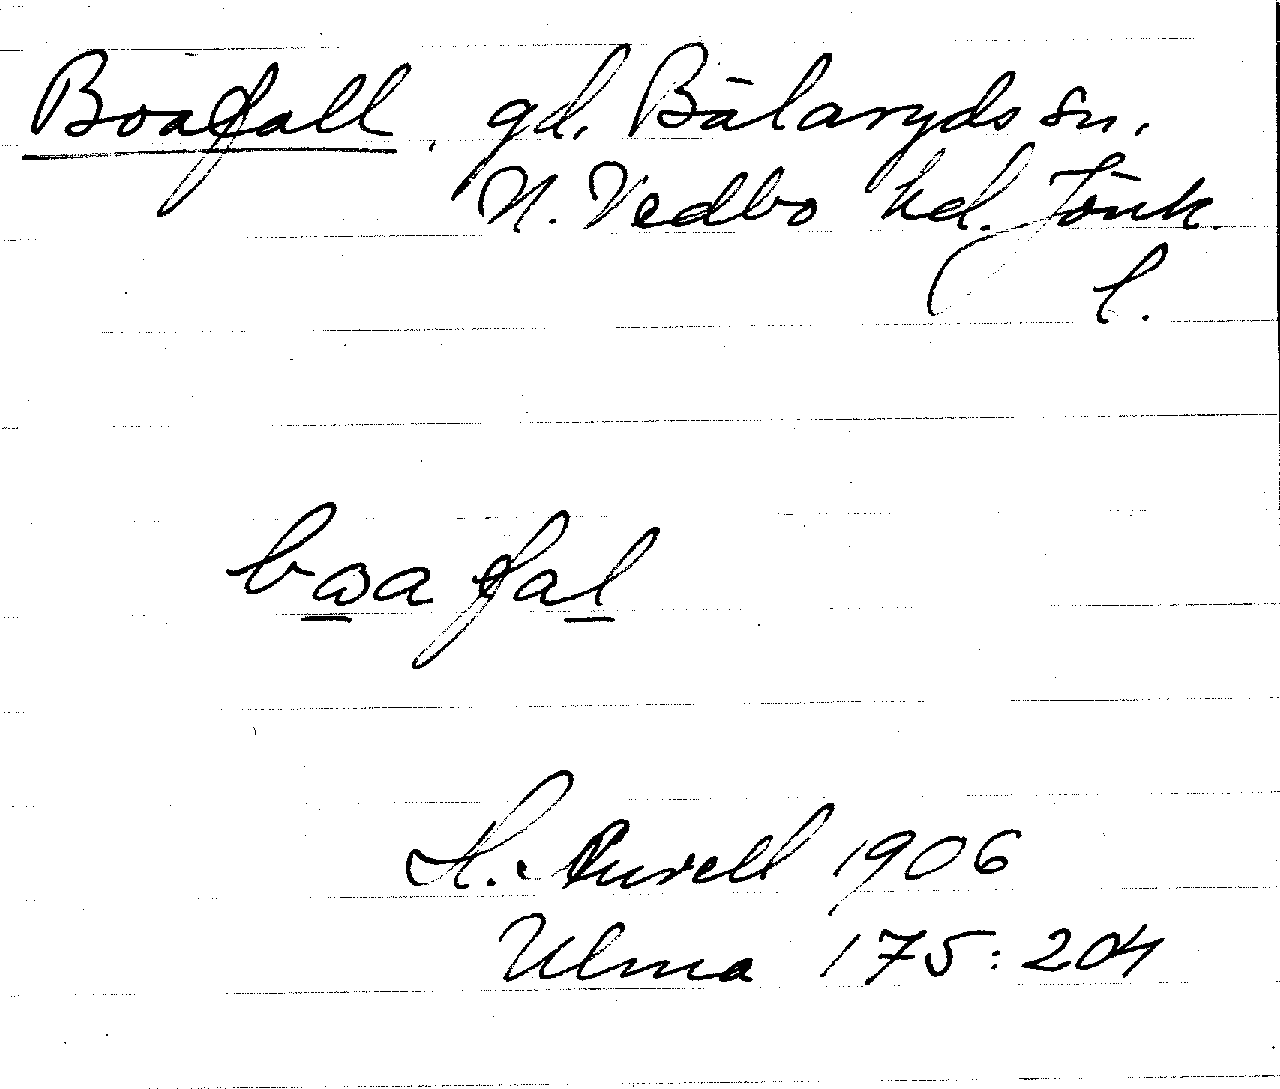 Boafall, gd. Bälaryds sn.
N. Vedbo hd. Jönk.
l.
bɷa fal
H. Aurell 1906
Ulma 175:204